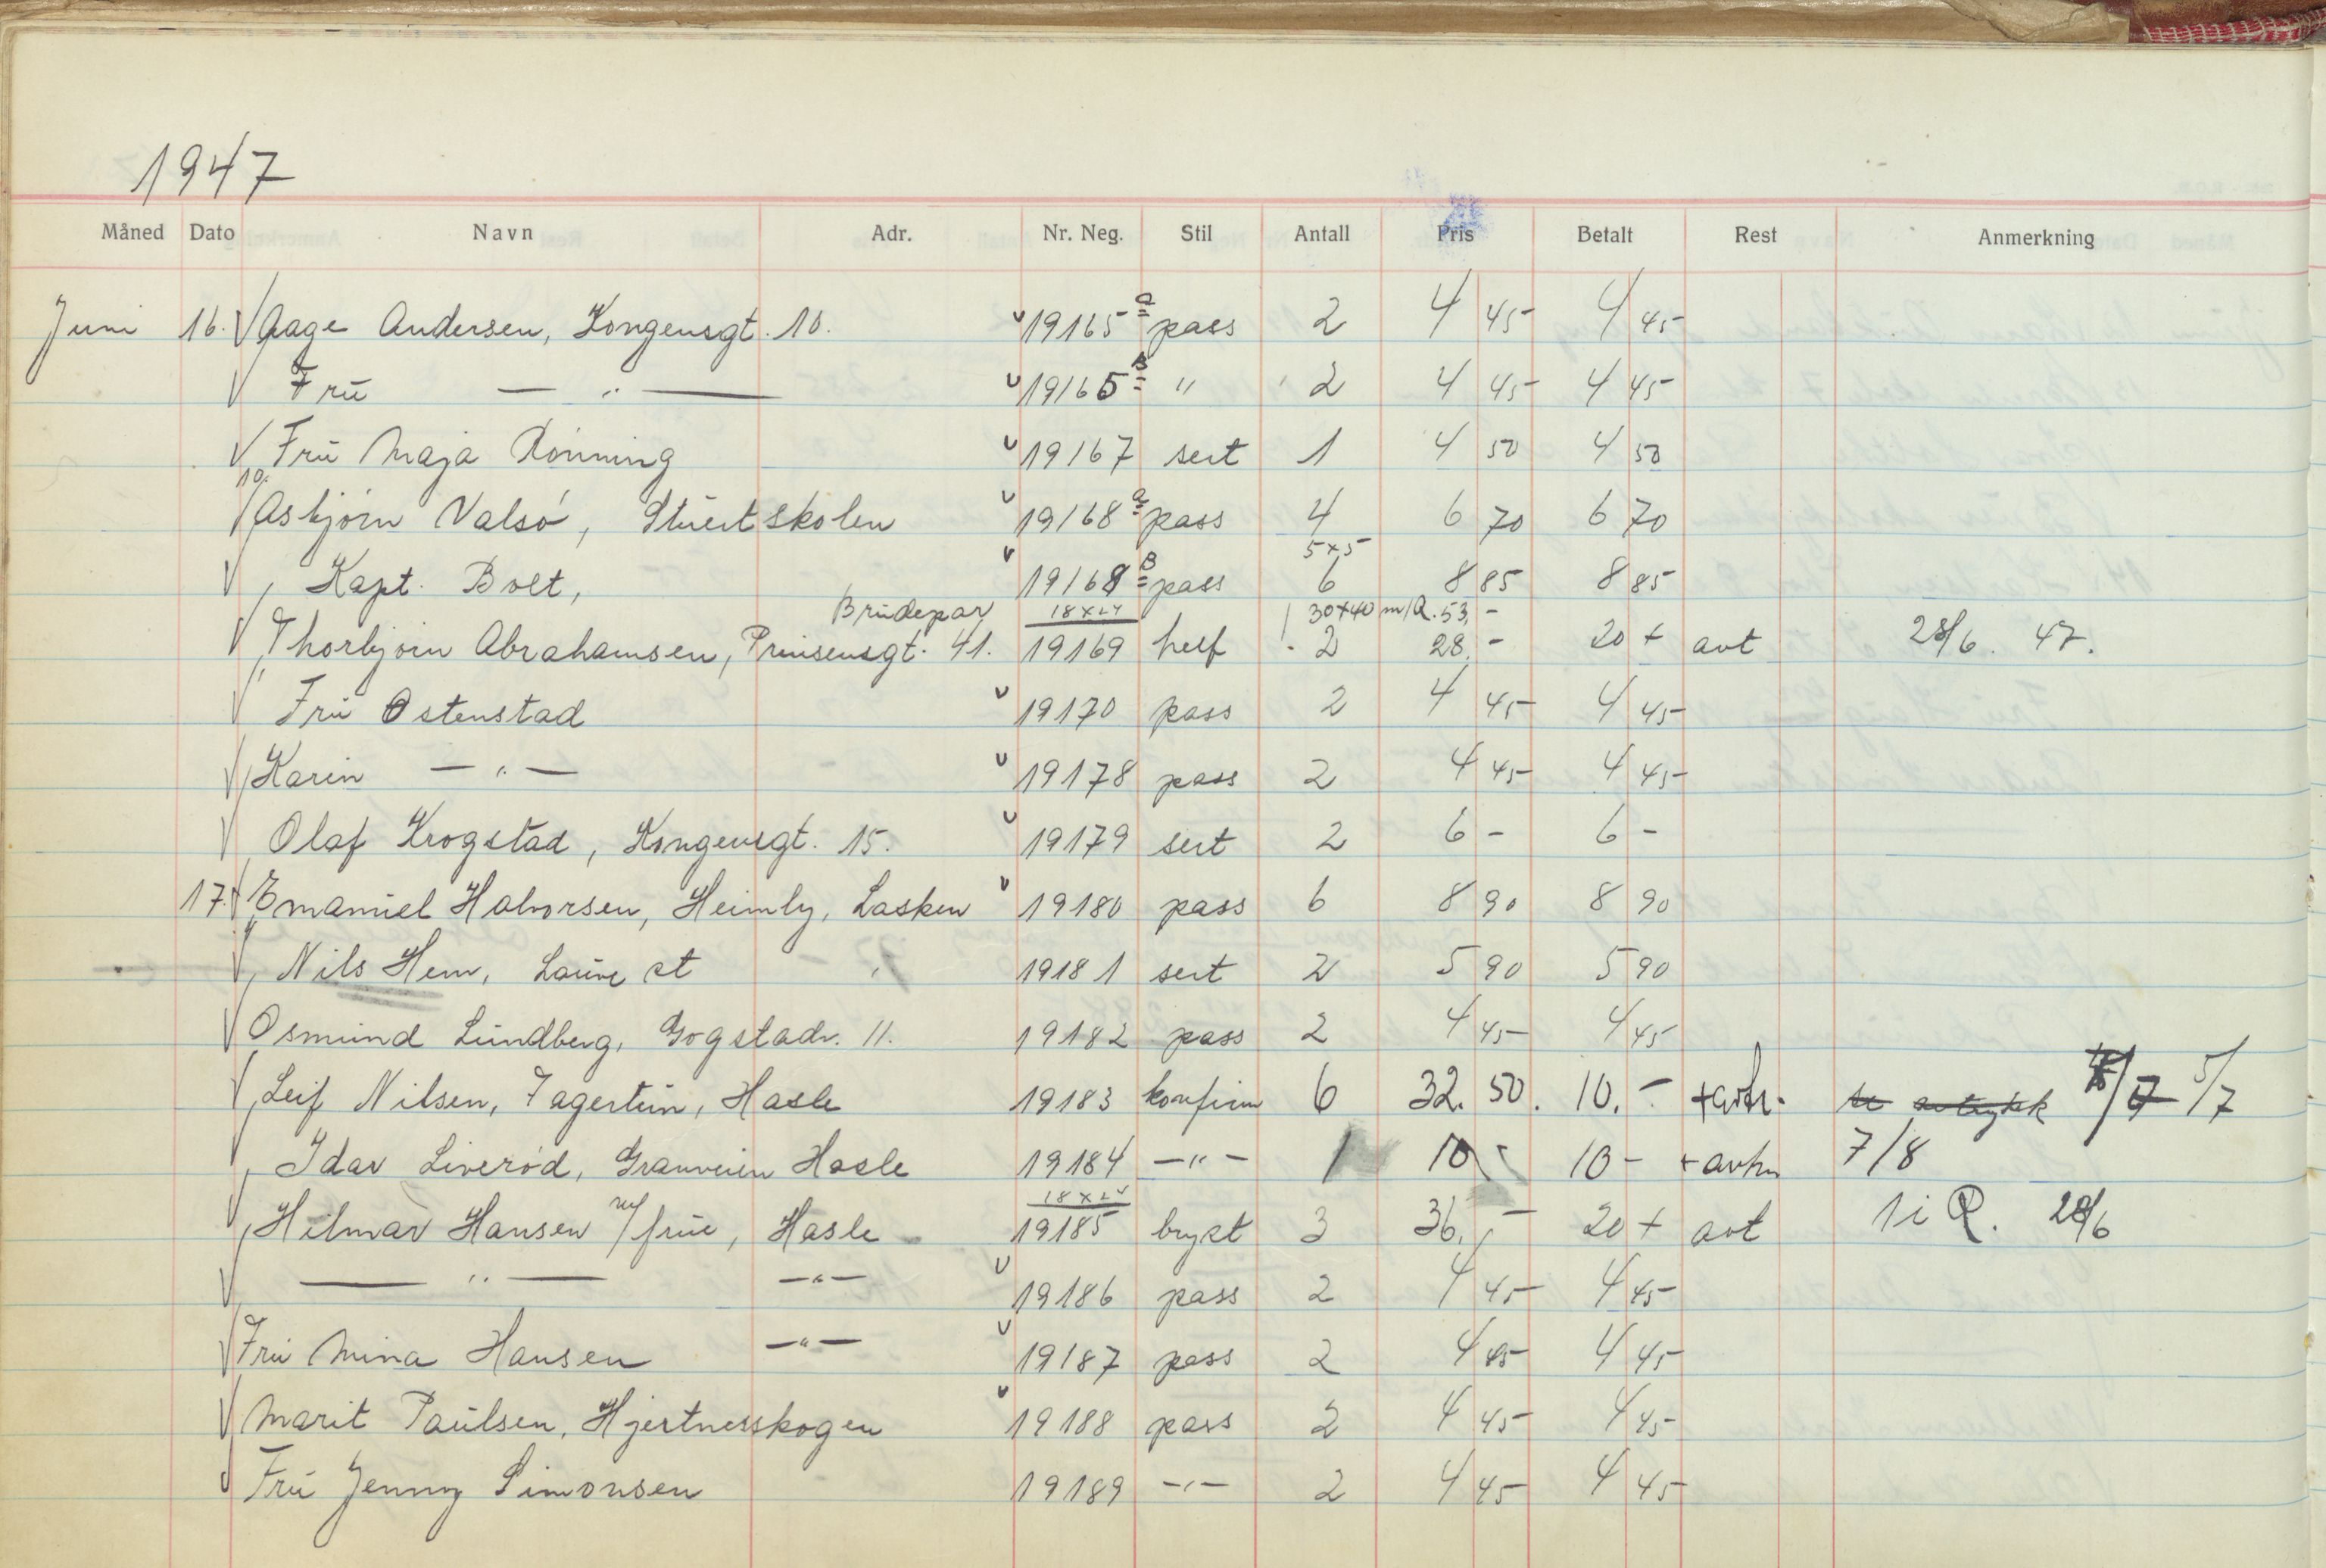 1947
Måned Dato Navn Adr. Nr. Neg. Stil Antall Pris Betalt Rest Anmerkning
Juni 16. Aage Andersen, Kongensgt. 10. 19165 a pass 2 4 45 4 45
Frü — " — 19165 B " 2 4 45 4 45
Frü Maja Rönning 19167 sert 1 4 50 4 50
10. Asbjörn Valsö, Stüertskolen 19168 a pass 4 6 70 6 70
Kapt. Bolt, 19168 B pass 5x5 6 8 85 8 85
Brüdepar 18x24 1 30x40 m/R. 53,-
Thorbjörn Abrahamsen, Prinsensgt. 41. 19169 helf 2 28,- 20 + avt 28/6. 47.
Frü Ostenstad 19170 pass 2 4 45 4 45
Karin — " — 19178 pass 2 4 45 4 45
Olaf Krogstad, Kongensgt. 15. 19179 sert 2 6 - 6 -
17. Emanüel Halvorsen, Heimly, Lasken 19180 pass 6 8 90 8 90
Nils Hem, Laüve st 19181 sert 2 5 90 5 90
Osmünd Lündberg, Gogstadv. 11. 19182 pass 2 4 45 4 45
Leif Nilsen, Fagertün, Hasle 19183 konfirm 6 32. 50. 10.- + avhn. 5/7
Idar Liveröd, Granveien Hasle 19184 — " — 1 10 - 10 - + avhn 7/8
18x24
Hilmar Hansen m/früe, Hasle 19185 brykt 3 36,- 20 + avt 1 i R. 28/6
— " — — " — 19186 pass 2 4 45 4 45
Frü Mina Hansen — " — 19187 pass 2 4 45 4 45
Marit Paülsen, Hjertnesskogen 19188 pass 2 4 45 4 45
Frü Jenny Simonsen 19189 — " — 2 4 45 4 45